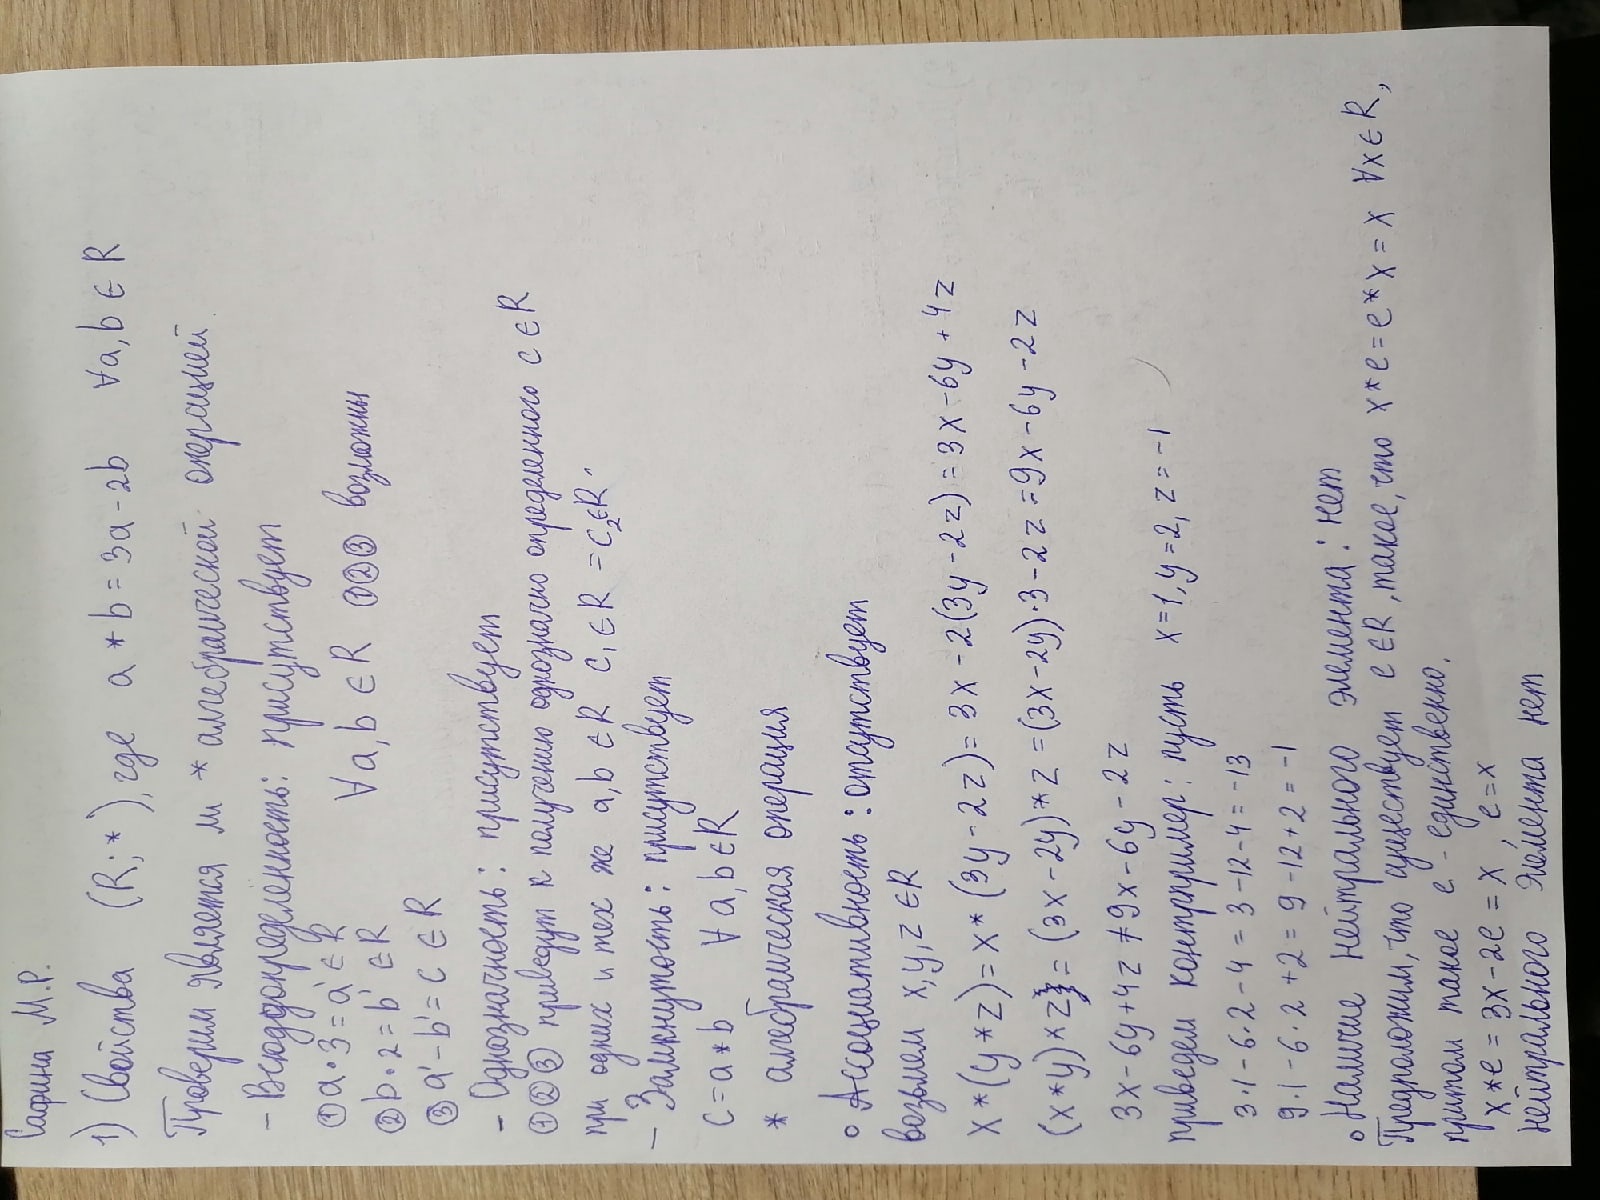 Сафина М.Р.
1) Свойства (R; *), где a * b = 3a - 2b ∀a, b ∈ R
Проверим является ли * алгебраической операцией
- Всюдуопределённость: присутствует
① a · 3 = a' ∈ R
② b · 2 = b' ∈ R
∀a, b ∈ R ①②③ возможны
③ a' - b' = c ∈ R
- Однозначность: присутствует
①②③ приведут к получению однозначно определенного c ∈ R
при одних и тех же a, b ∈ R c₁ ∈ R = c₂ ∈ R
- Замкнутость: присутствует
c = a * b ∀ a, b ∈ R
* алгебраическая операция
∘ Ассоциативность: отсутствует
возьмем x, y, z ∈ R
x * (y * z) = x * (3y - 2z) = 3x - 2(3y - 2z) = 3x - 6y + 4z
(x * y) * z = (3x - 2y) * z = (3x - 2y) · 3 - 2z = 9x - 6y - 2z
3x - 6y + 4z ≠ 9x - 6y - 2z
приведем контрпример: пусть x = 1, y = 2, z = -1
3 · 1 - 6 · 2 - 4 = 3 - 12 - 4 = -13
9 · 1 - 6 · 2 + 2 = 9 - 12 + 2 = -1
∘ Наличие нейтрального элемента: нет
Предположим, что существует e ∈ R, такое, что x * e = e * x = x ∀x ∈ R,
притом такое e - единственно.
x * e = 3x - 2e = x, e = x
нейтрального элемента нет